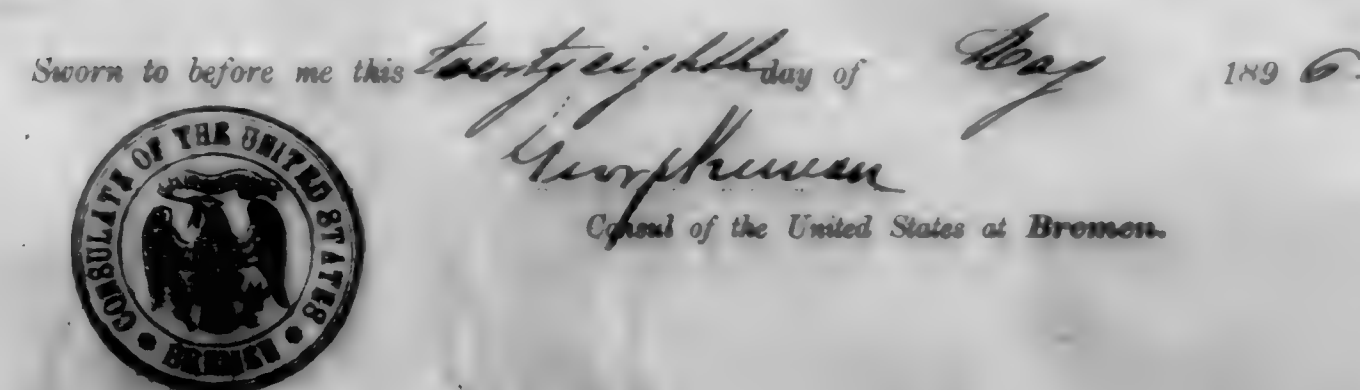 Sworn to before me this twenty eighth day of May 1896.
George Keenan
Consul of the United States at Bremen.
CONSULATE OF THE UNITED STATES
BREMEN